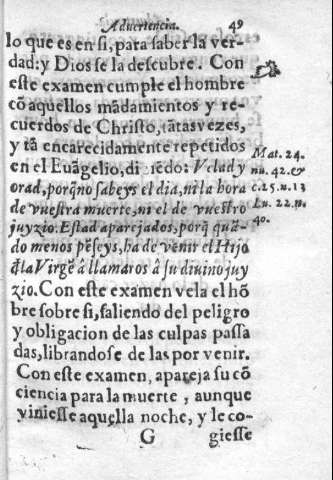 Aduertencia. 49
lo que es en si, para saber la ver-
dad: y Dios se la descubre. Con
este examen cumple el hombre
cõ aquellos mãdamientos y re-
cuerdos de Christo, tãtas vezes,
y tã encarecidamente repetidos
en el Euãgelio, diziẽdo: Velad y
orad, porq̃ no sabeys el dia, ni la hora
de vuestra muerte, ni el de vuestro
juyzio. Estad aparejados, porq̃ quã-
do menos pẽseys, ha de venir el Hijo
d̃ la Virgẽ â llamaros â su diuino juy
zio. Con este examen vela el hõ
bre sobre si, saliendo del peligro
y obligacion de las culpas passa
das, librandose de las por venir.
Con este examen, apareja su cõ
ciencia para la muerte, aunque
viniesse aquella noche, y le co-
G giesse
Mat. 24.
nu. 42. &
c. 25. n. 13
Lu. 22. n.
40.